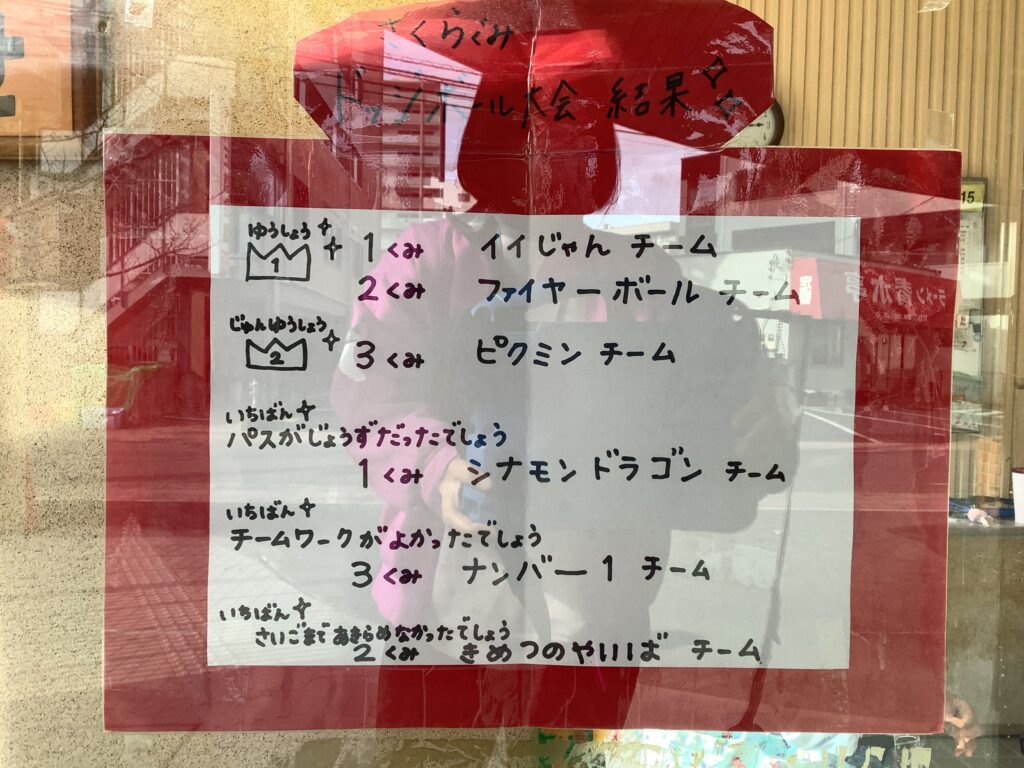 さくらぐみ
ドッジボール大会 結果
ゆうしょう
1
1くみ イイじゃん チーム
2くみ ファイヤーボール チーム
じゅんゆうしょう
2
3くみ ピクミン チーム
いちばん
パスがじょうずだったでしょう
1くみ シナモンドラゴン チーム
いちばん
チームワークがよかったでしょう
3くみ ナンバー1 チーム
いちばん
さいごまであきらめなかったでしょう
2くみ きめつのやいば チーム
ラーメン 清水亭
15